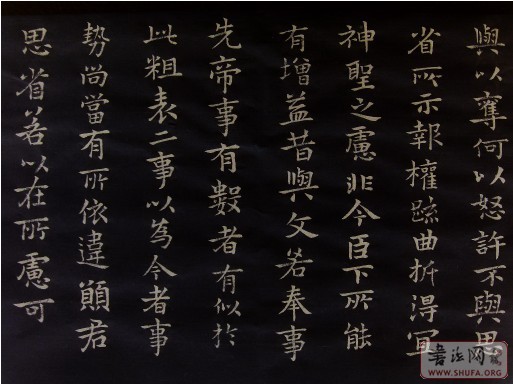 與以奪何以怒許不與思
省所示報權踈曲折得宜
神聖之慮非今臣下所能
有增益昔與文若奉事
先帝事有數者有似於
此粗表二事以為今者事
勢尚當有所依違願君
思省若以在所慮可
書法网
WWW.SHUFA.ORG